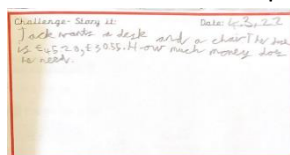 Challenge- Story it: Date: 4.3.22
Jack wants a desk and a chair The desk
is £45.29, £30.55. How much money does
he need.